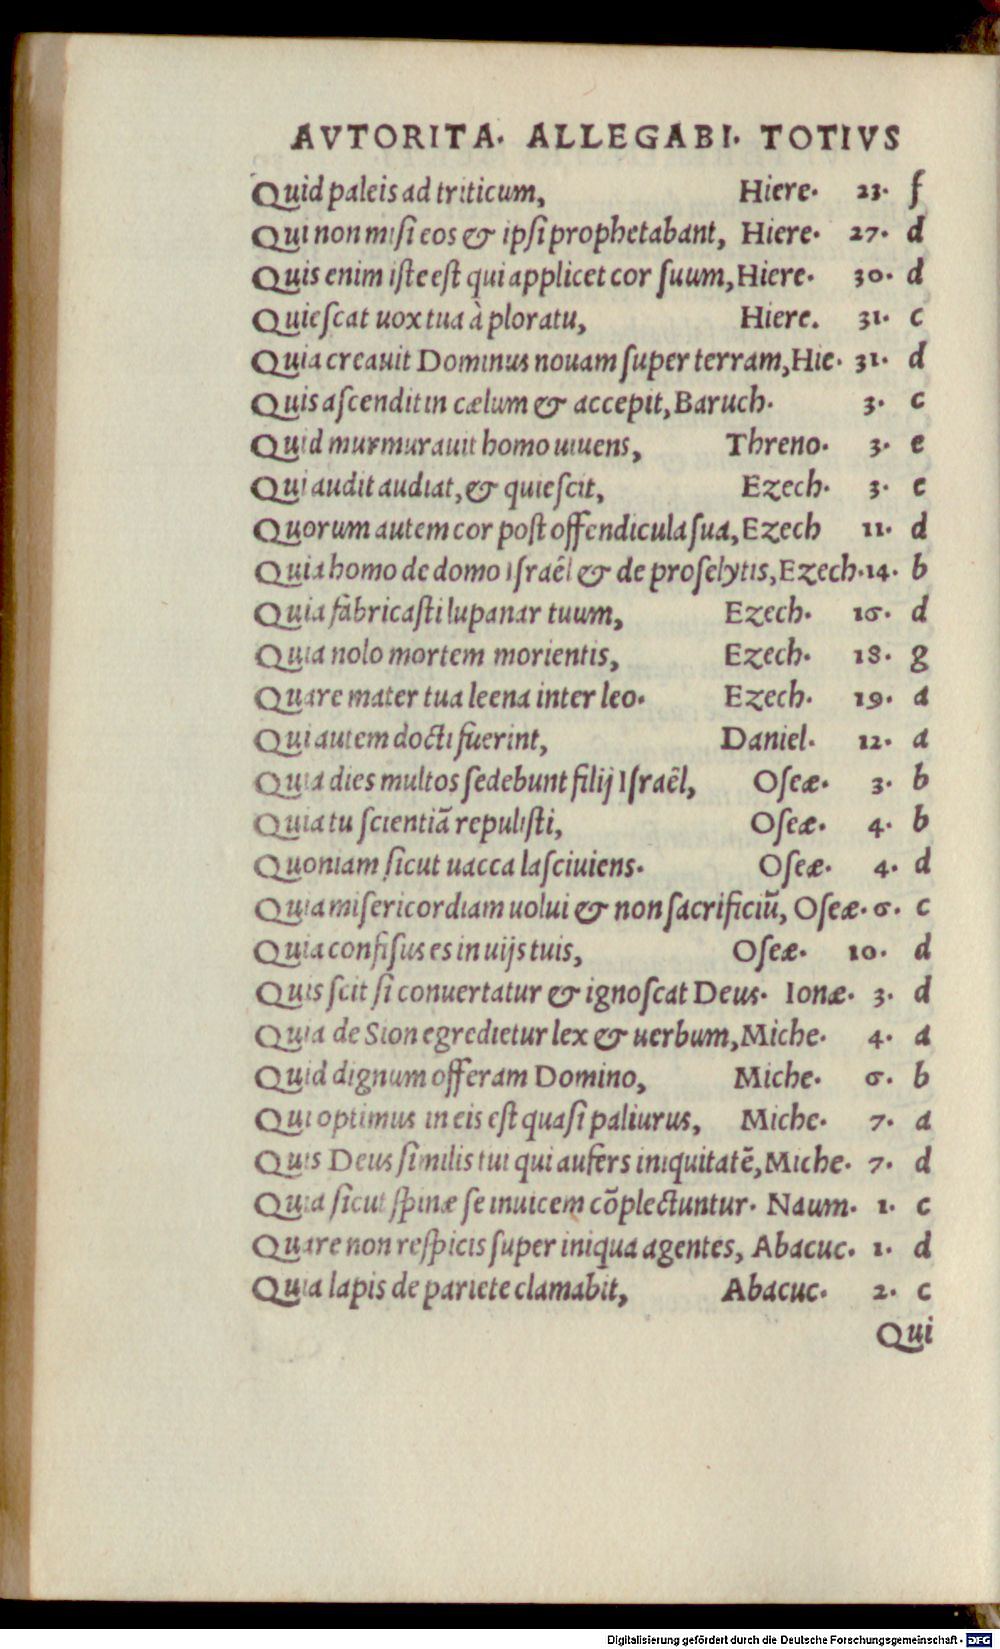 AVTORITA. ALLEGABI. TOTIVS
Quid paleis ad triticum, Hiere. 23. f
Qui non misi eos & ipsi prophetabant, Hiere. 27. d
Quis enim iste est qui applicet cor suum, Hiere. 30. d
Quiescat uox tua à ploratu, Hiere. 31. c
Quia creauit Dominus nouam super terram, Hie. 31. d
Quis ascendit in cælum & accepit, Baruch. 3. c
Quid murmurauit homo uiuens, Threno. 3. e
Qui audit audiat, & quiescit, Ezech. 3. e
Quorum autem cor post offendicula sua, Ezech 11. d
Quia homo de domo Israêl & de proselytis, Ezech. 14. b
Quia fabricasti lupanar tuum, Ezech. 16. d
Quia nolo mortem morientis, Ezech. 18. g
Quare mater tua leena inter leo. Ezech. 19. a
Qui autem docti fuerint, Daniel. 12. a
Quia dies multos sedebunt filij Israêl, Oseæ. 3. b
Quia tu scientiã repulisti, Oseæ. 4. b
Quoniam sicut uacca lasciuiens. Oseæ. 4. d
Quia misericordiam uolui & non sacrificiũ, Oseæ. 6. c
Quia confisus es in uijs tuis, Oseæ. 10. d
Quis scit si conuertatur & ignoscat Deus. Ionæ. 3. d
Quia de Sion egredietur lex & uerbum, Miche. 4. a
Quid dignum offeram Domino, Miche. 6. b
Qui optimus in eis est quasi paliurus, Miche. 7. a
Quis Deus similis tui qui aufers iniquitatẽ, Miche. 7. d
Quia sicut spinæ se inuicem cõplectuntur. Naum. 1. c
Quare non respicis super iniqua agentes, Abacuc. 1. d
Quia lapis de pariete clamabit, Abacuc. 2. c
Qui
Digitalisierung gefördert durch die Deutsche Forschungsgemeinschaft - DFG